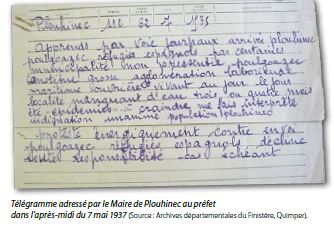 Plouhinec 112 62 7 1735
Apprends par voie journaux arrivée ploulpoulgoazec réfugiés espagnols par centaines
municipalité mon poulgoazec
grosse agglomération laborieuse
maritime ouvrière vivant au jour le jour
localité manquant d'eau trois ou quatre mois
été épidémies à craindre me fais interprète
indignation unanime population plouhinec
proteste énergiquement contre envoi
poulgoazec réfugiés espagnols décline
responsabilité cas échéant
Télégramme adressé par le Maire de Plouhinec au préfet
dans l'après-midi du 7 mai 1937 (Source : Archives départementales du Finistère, Quimper).